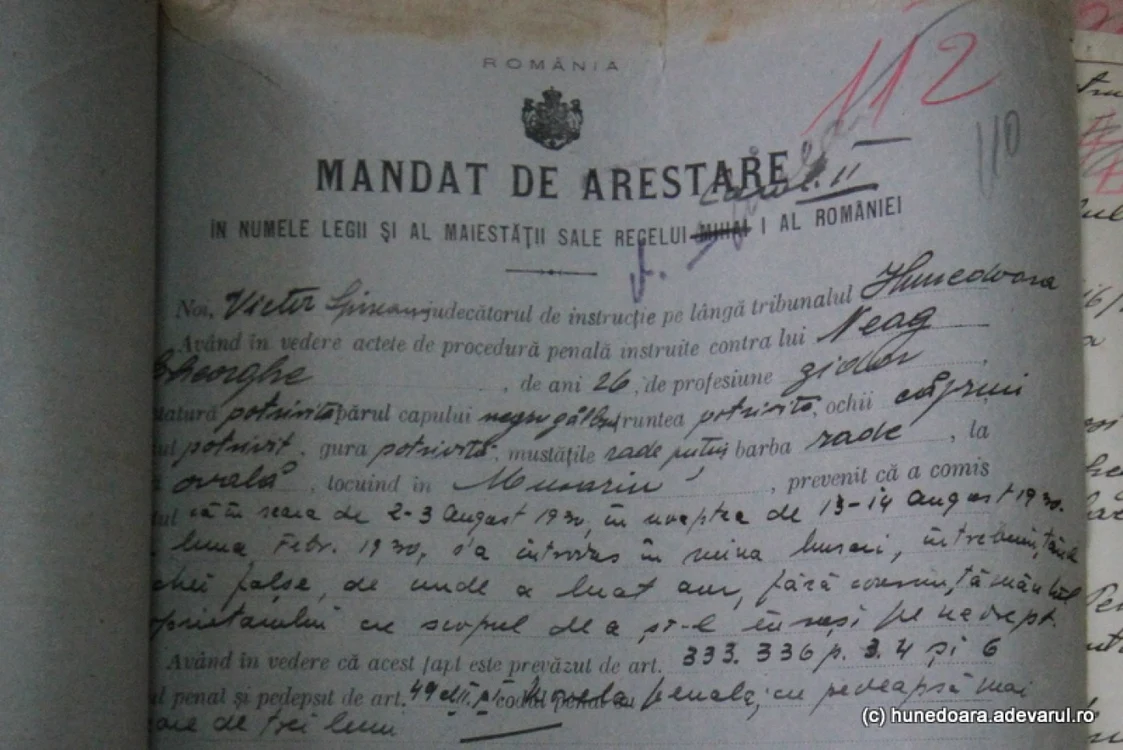 ROMÂNIA
112
110
MANDAT DE ARESTARE
Carol II
ÎN NUMELE LEGII ȘI AL MAIESTĂȚII SALE REGELUI MIHAI I AL ROMÂNIEI
Noi, Victor judecătorul de instrucție pe lângă tribunalul Hunedoara
Având în vedere actele de procedură penală instruite contra lui Neag
Gheorghe, de ani 26, de profesiune zidar,
statură potrivită părul capului negru fruntea potrivită, ochii căprui
potrivit, gura potrivită, mustățile rade puțin barba rade, la
ovală, locuind în, prevenit că a comis
că în seara de 2-3 August 1930, în noaptea de 13-14 August 1930.
luna Febr. 1930, s'a introdus în mina, întrebuințând
chei false, de unde a luat aur, fără consimțământul
proprietarului cu scopul de a și-l însuși pe nedrept.
Având în vedere că acest fapt este prevăzut de art. 333. 336 p. 3. 4 și 6
penal și pedepsit de art. 49 codul penal penală, cu pedeapsă mai
mare de trei luni
(c) hunedoara.adevarul.ro